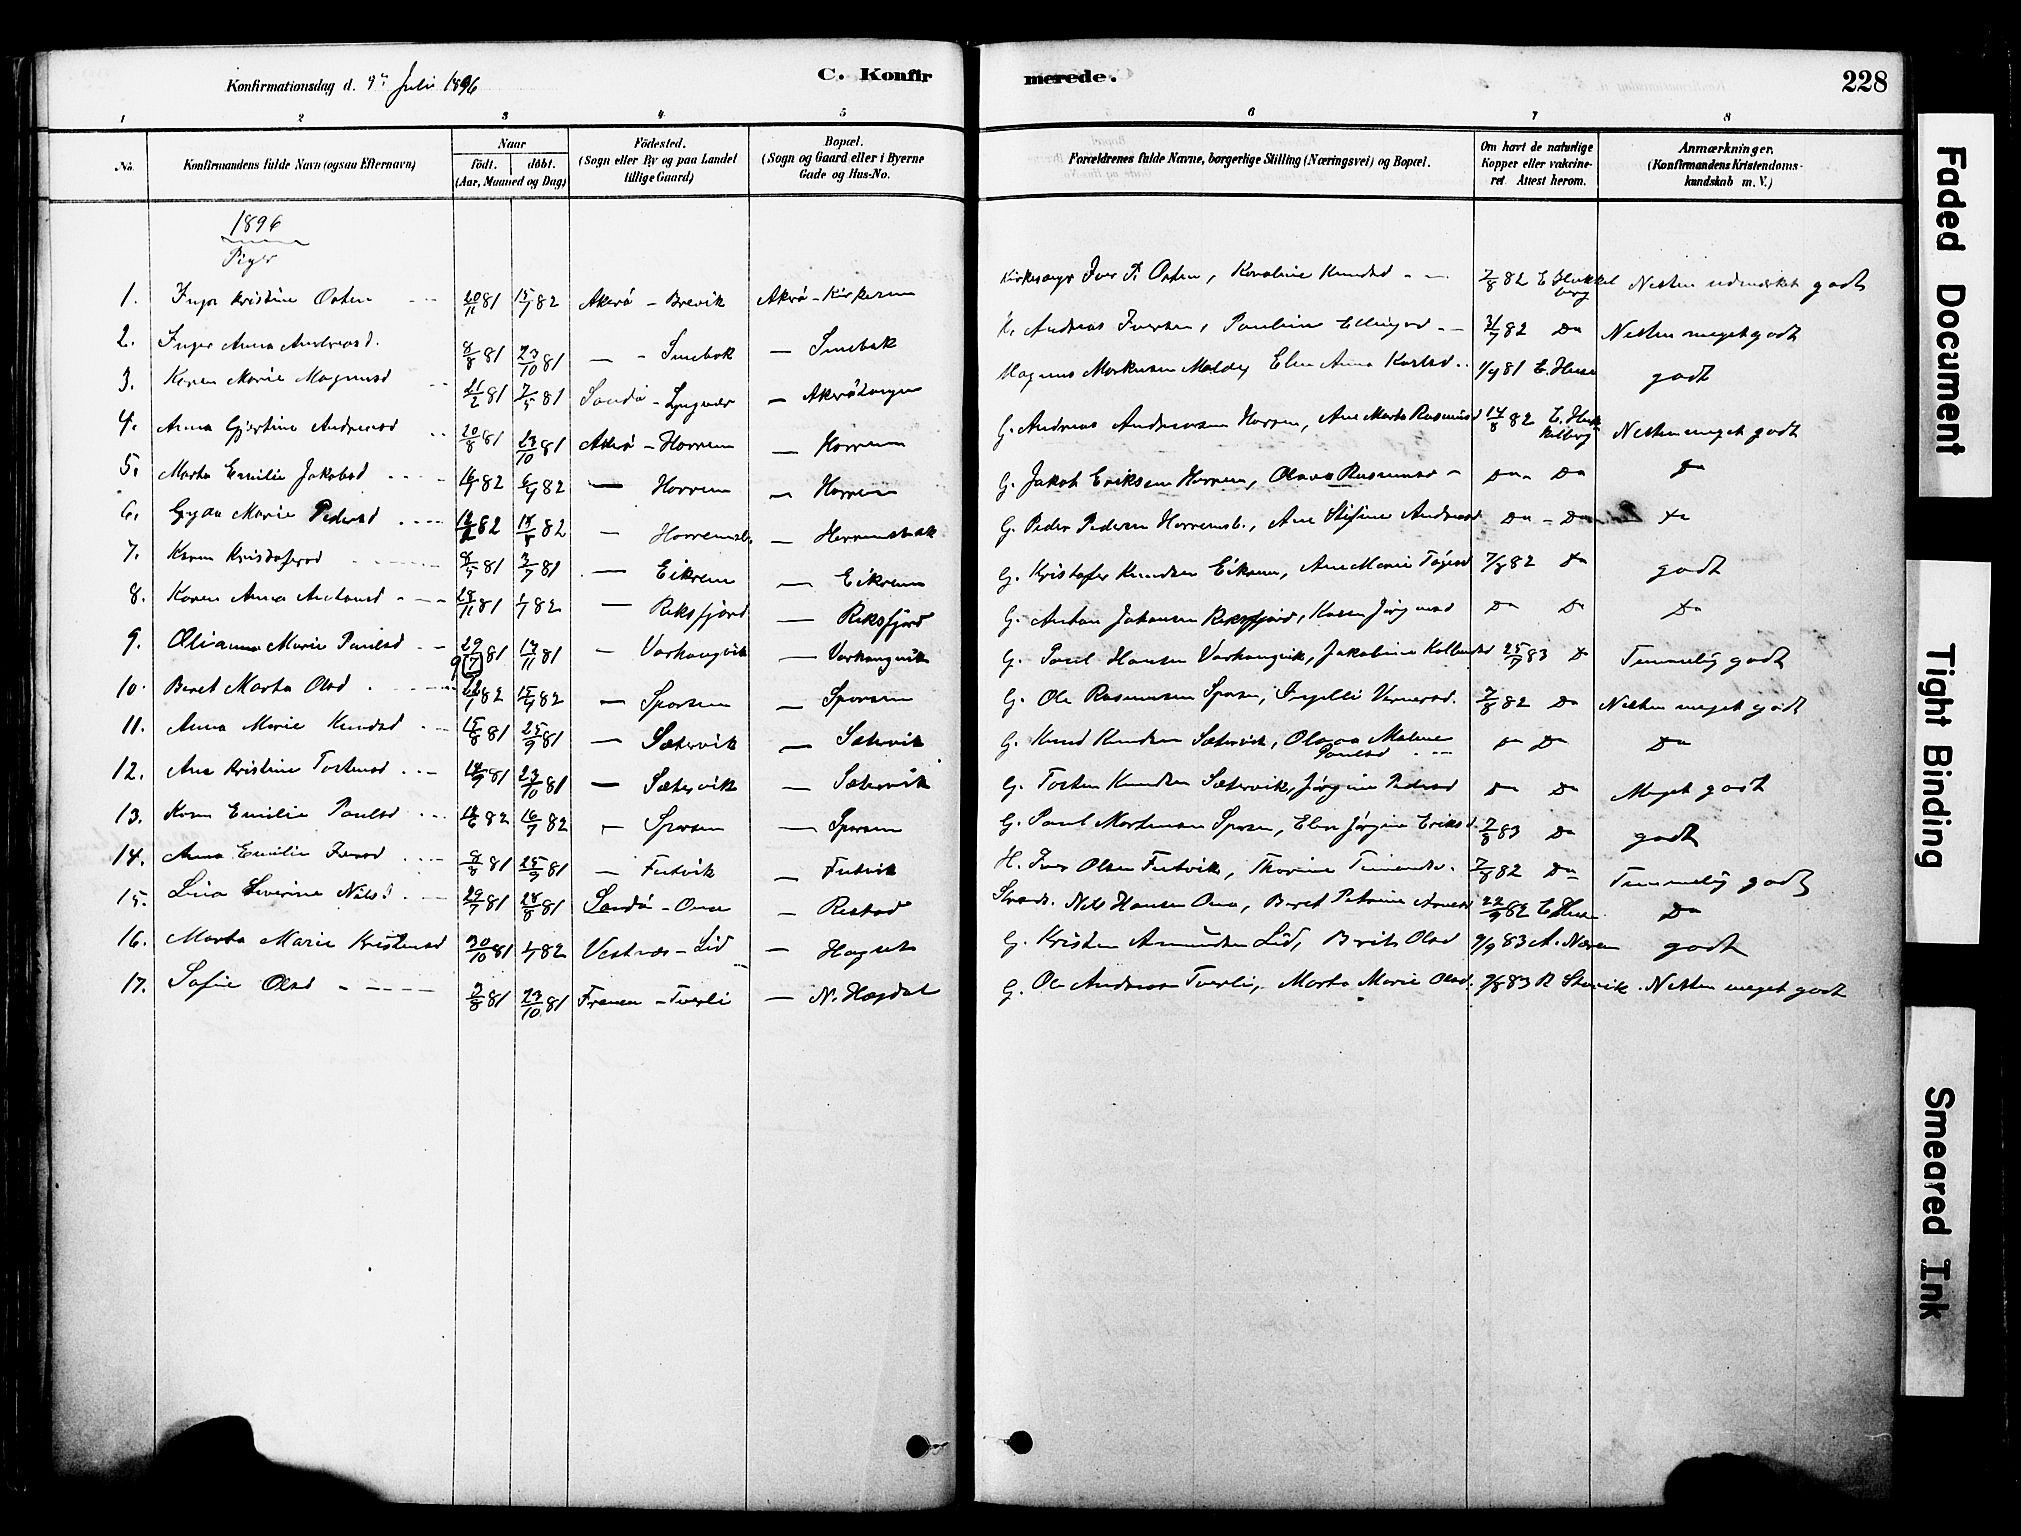 Konfirmationsdag d. 9de Juli 1896
C. Konfirmerede.
228
1 2 3 4 5 6 7 8
No. Konfirmandens fulde Navn (ogsaa Efternavn) Naar födt. döbt. (Aar, Maaned og Dag) Födested. (Sogn eller By og paa Landet tillige Gaard) Bopæl. (Sogn og Gaard eller i Byerne Gade og Hus-No. Forældrenes fulde Navne, borgerlige Stilling (Næringsvei) og Bopæl. Om havt de naturlige Kopper eller vakcineret Attest herom. Anmærkninger. (Konfirmandens Kristendomskundskab m. V.)
1896
Piger
1. Inga Kristine Oaten 20/11 81 15/1 82 Akerö - Brevik Akerö - Kirkerem Kirkesanger Iver P. Oaten, Karoline Knudsd 7/8 82 Nesten udmærket godt
2. Inger Anna Andreasd. 8/8 81 23/10 81 — Smebak — Smebak Andreas Iversen, Pauline Ellingsd 31/7 82 Do Nesten meget godt
3. Karen Marie Magnusd 21/2 81 7/5 81 Sandö - Lyngvær — Akerötangen Magnus Markusen Malöy Elen Anna Karlsd 1/9 81 godt
4. Anna Gjertine Andreasd 20/8 81 23/10 81 Akerö - Horrem — Horrem G. Andreas Andreassen Horrem, Ane Marta Rasmusd 14/8 82 Nesten meget godt
5. Marta Emilie Jakobsd 82 82 — Horrem — Horrem G. Jakob Eriksen Horrem, Olava Rasmusd Do Do Do
6. Gyda Marie Pedersd 82 82 — Horremsb. — Horremsbak G. Peder Pedersen Horremsb., Ane Stefine Andreasd Do - Do Do
7. Karen Kristofersd 81 3/7 81 — Eikrem — Eikrem G. Kristofer Knudsen Eikrem, Ane Marie 7/8 82 Do godt
8. Karen Anna Antonsd 28/11 81 1/1 82 — Reksfjord — Reksfjord G. Anton Johansen Reksfjord, Karen Jörgensd Do Do Do
9. Olianna Marie Paulsd 29/9 [7] 81 13/11 81 — Varhaugvik — Varhaugvik G. Paul Hansen Varhaugvik, Jakobine 25/7 83 Do Temmelig godt
10. Beret Marta Olsd 82 82 — Sporsem — Sporsem G. Ole Rasmussen Sporsem, 7/8 82 Do Nesten meget godt
11. Anna Marie Knudsd 15/8 81 25/9 81 — Sætervik — Sætervik G. Knud Knudsen Sætervik, Olava Malene Paulsd Do Do Do
12. Ane Kristine Torstensd 81 23/10 81 — Sætervik — Sætervik G. Torsten Knudsen Sætervik, Jörgine Pedersd Do Do Meget godt
13. Karen Emilie Paulsd 82 16/7 82 — Sporsem — Sporsem G. Paul Mortensen Sporsem, Elen Jörgine Eriksd. 7/8 83 Do godt
14. Anna Emilie Iversd 8/8 81 25/9 81 — Futvik — Futvik H. Iver Olsen Futvik, Thorine 7/8 82 Do Temmelig godt
15. Lina Severine Nilsd. 29/7 81 28/8 81 Sandö - Ona — Restad Strands. Nils Hansen Ona, Beret Petrine 22/9 82 Do
16. Marta Marie Kristensd 30/10 81 1/1 82 Vestnes - Lid — Hagset G. Kristen Amundsen Lid, Berit Olsd 9/9 83 A. Næren godt
17. Sofie Olsd 7/8 81 23/10 81 Frænen - Tverli — N. Hagdal G. Ole Andreas Tverli, Marta Marie Olsd. 7/8 83 Nesten meget godt
Faded Document
Tight Binding
Smeared Ink